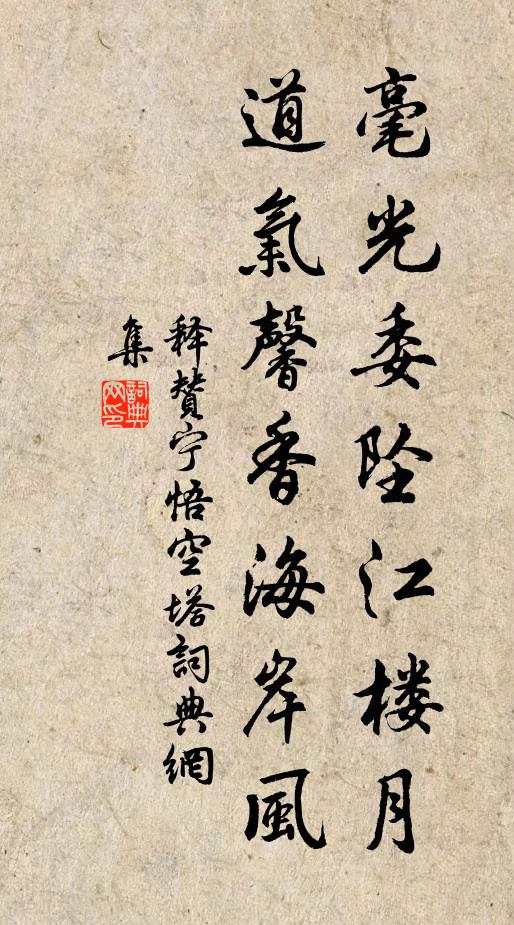 毫光委坠江楼月
道氣馨香海岸風
释贊宁悟空塔詞典網
集
詞典
网印